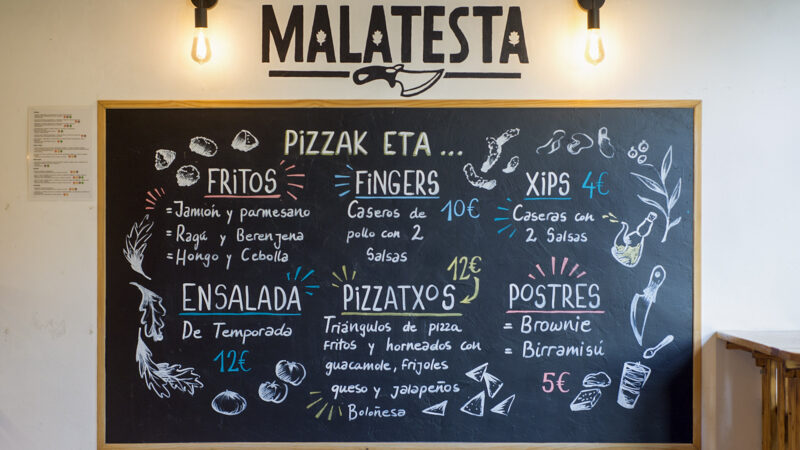 MALATESTA
PiZZAK ETA ...
FRiTOS
= Jamón y parmesano
= Ragú y Berenjena
= Hongo y Cebolla
FiNGERS
Caseros de
pollo con 2
Salsas
10€
XiPS 4€
Caseras con
2 Salsas
ENSALADA
De Temporada
12€
PiZZATXOS
12€
Triángulos de pizza
fritos y horneados con
guacamole, frijoles
queso y jalapeños
Boloñesa
POSTRES
= Brownie
= Birramisú
5€